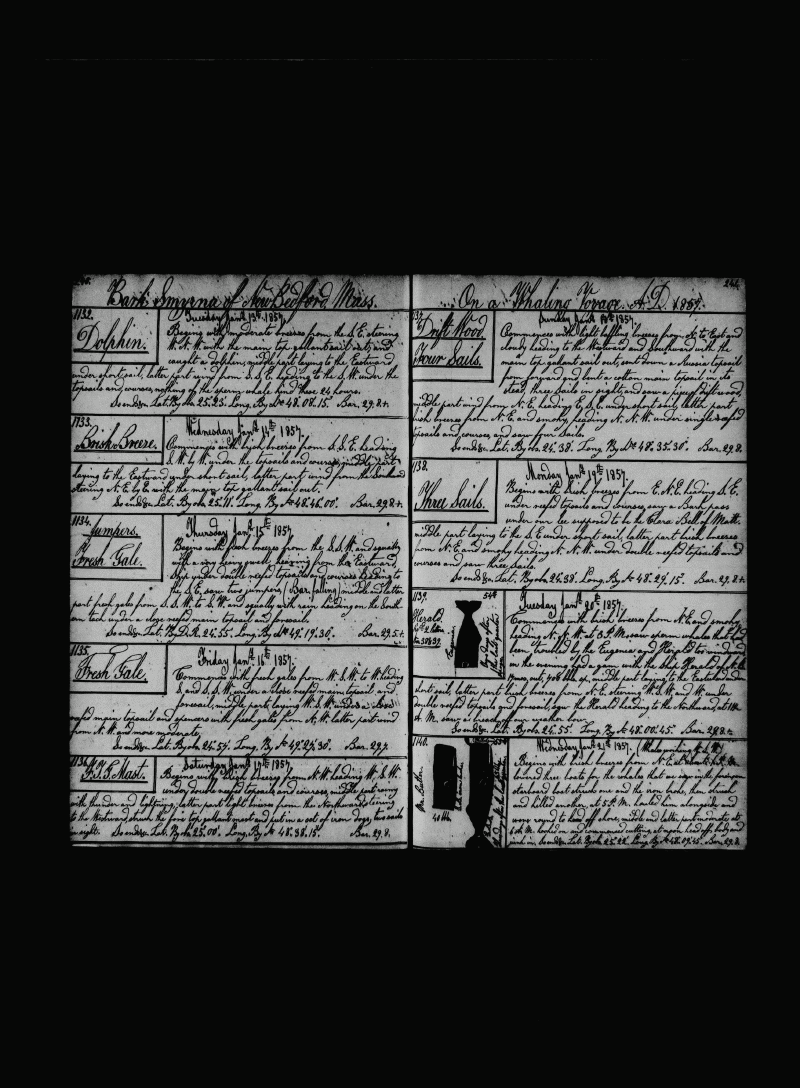 Bark Smyrna of New Bedford Mass.
1132. Tuesday Jany 13th 1857.
Dolphin.
Begins with moderate breezes from the S.E. steering
W.N.W. with the main top gallant sail out, and
caught a dolphin, middle part laying to the Eastward
under short sail, latter part wind from S.S.E. heading to the S.W. under the
topsails and courses, nothing of the sperm whale kind these 24 hours.
So ends Lat. By ob. 25.23. Long. By 48.08.15. Bar. 29.8
1133. Wednesday Jany 14th 1857.
Brisk Breeze.
Commences with brisk breezes from S.S.E. heading
S.W. by W. under the topsails and courses, middle part
laying to the Eastward under short sail, latter part wind from the
steering N.E. by E. with the main top gallant sail out.
So ends Lat. By ob. 25.11. Long. By 48.46.00. Bar. 29.8
1134. Thursday Jany 15th 1857
Jumpers.
Fresh Gale.
Begins with fresh breezes from the S.S.W. and squally
with a very heavy swell heaving from the Eastward,
ship under double reefed topsails and courses heading to
the S.E. saw two jumpers, (Bar. falling) middle and latter
part fresh gales from S.S.W. to W. and squally with rain heading on the South-
ern tack under a close reefed main topsail and foresail.
So ends Lat. By D.R. 24.55. Long. By 49.19.30. Bar. 29.5
1135. Friday Jany 16th 1857.
Fresh Gale.
Commences with fresh gales from W.S.W. to W. heading
S. and S.S.W. under a close reefed main topsail and
foresail, middle part laying W.S.W. under a close
reefed main topsail and spencers with fresh gales from N.W. latter part wind
from N.W. and more moderate,
So ends Lat. By ob. 24.57. Long. By 49.24.30. Bar. 29.7
1136. Saturday Jany 17th 1857.
F.T.G. Mast.
Begins with fresh breezes from N.W. heading W.S.W.
under double reefed topsails and courses, middle part rainy
with thunder and lightning, latter part light breezes from the Northward steering
to the Westward, struck the fore top gallant mast and put in a set of iron dogs, two sails
in sight. So ends Lat. By ob. 25.00. Long. By 48.38.15. Bar. 29.8.
244
On a Whaling Voyage. A.D. 1857.
Sunday Jany 18th 1857
Drift Wood.
Four Sails.
Commences with light baffling breezes from N. to East and
cloudy heading to the Westward and Southward with the
main top gallant sail out, sent down a Russia topsail
from fore yard and bent a cotton main topsail in its
stead, three sails in sight and saw a piece of drift wood,
middle part wind from N.E. heading E.S.E. under short sail, latter part
brisk breezes from N.E. and smoky heading N.N.W. under single reefed
topsails and courses and saw four Sails.
So ends Lat. By ob. 24.38. Long. By 48.35.30. Bar. 29.8
1138. Monday Jany 19th 1857.
Three Sails.
Begins with fresh breezes from E.N.E. heading S.E.
under reefed topsails and courses, saw a Bark pass
under our lee supposed to be the Clara Bell of Matt.
middle part laying to the S.E. under short sail, latter part brisk breezes
from N.E. and smoky heading N.N.W. under double reefed topsails and
courses and saw three Sails.
So ends Lat. By ob. 24.38. Long. By 48.29.15. Bar. 29.8
1139. Tuesday Jany 20th 1857.
Herald.
Eugenia.
Commences with brisk breezes from N.E. and smoky
heading N.N.W. at 3 P.M. saw sperm whales that had
been troubled by the Eugenia and Herald to windward
in the evening had a gam with the ship Herald
middle part laying to the Eastward under
short sail, latter part brisk breezes from N.E. steering W.S.W. and W. under
double reefed topsails and foresail, saw the Herald heading to the Northward, at
A.M. saw a breach off our weather bow.
So ends Lat. By ob. 24.55. Long. By 48.00.45. Bar. 29.8
1140. Wednesday Jany 21st 1857.
40 bbls.
Begins with brisk breezes from N.E. at
lowered three boats for the whales
starboard boat struck one and the iron broke, then struck
and killed another, at 5 P.M. hauled him alongside and
wore round to head off shore, middle and latter part moderate, at
A.M. hooked on and commenced cutting
So ends Lat. By ob. 25.22. Long. By 48.09.45. Bar. 29.8